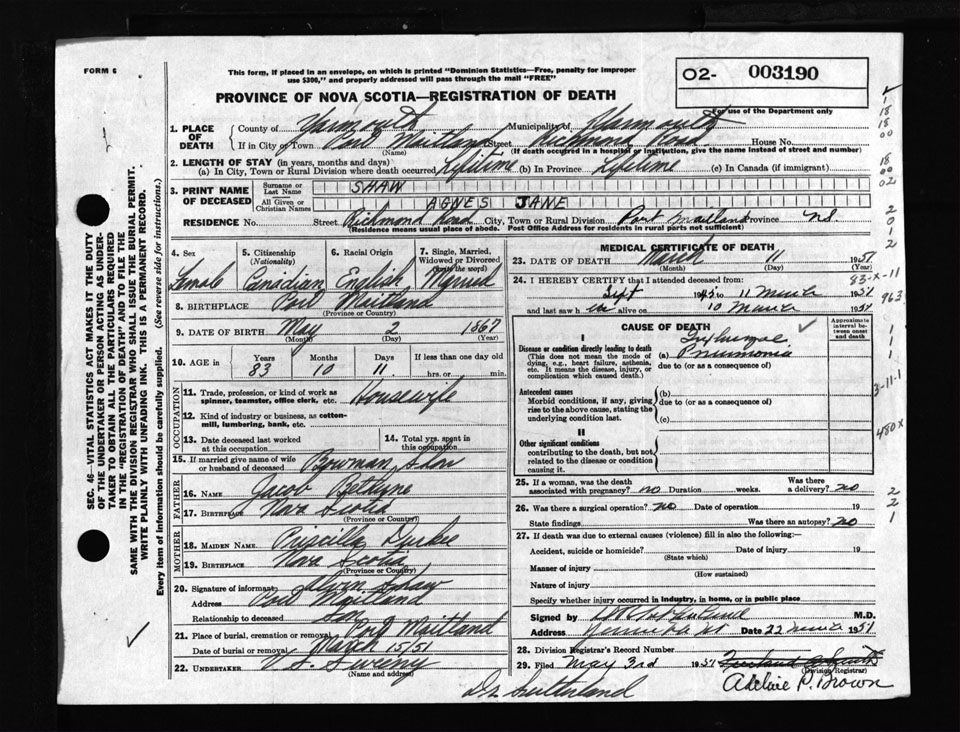 FORM 6
This form, if placed in an envelope, on which is printed "Dominion Statistics—Free, penalty for improper
use $300," and properly addressed will pass through the mail "FREE"
O2- 003190
For use of the Department only
PROVINCE OF NOVA SCOTIA—REGISTRATION OF DEATH
1. PLACE OF DEATH County of Yarmouth Municipality of Yarmouth
If in City or Town Port Maitland Richmond Road House No.
(Name) (If death occurred in a hospital or institution, give the name instead of street and number)
2. LENGTH OF STAY (in years, months and days)
(a) In City, Town or Rural Division where death occurred Lifetime (b) In Province Lifetime (c) In Canada (if immigrant)
3. PRINT NAME OF DECEASED Surname or Last Name SHAW
All Given or Christian Names AGNES JANE
RESIDENCE No. Street Richmond Road City, Town or Rural Division Port Maitland Province NS
(Residence means usual place of abode. Post Office Address for residents in rural parts not sufficient)
4. Sex 5. Citizenship (Nationality) 6. Racial Origin 7. Single, Married, Widowed or Divorced (write the word)
Female Canadian English Married
8. BIRTHPLACE Port Maitland
(Province or Country)
9. DATE OF BIRTH May 2 1867
(Month) (Day) (Year)
10. AGE in Years Months Days If less than one day old
83 10 11 hrs. or min.
OCCUPATION
11. Trade, profession, or kind of work as spinner, teamster, office clerk, etc. Housewife
12. Kind of industry or business, as cotton-mill, lumbering, bank, etc.
13. Date deceased last worked at this occupation 14. Total yrs. spent in this occupation
15. If married give name of wife or husband of deceased Bowman Shaw
FATHER
16. NAME Jacob Bethune
17. BIRTHPLACE Nova Scotia
(Province or Country)
MOTHER
18. MAIDEN NAME Priscilla Durkee
19. BIRTHPLACE Nova Scotia
(Province or Country)
20. Signature of informant Alvin Shaw
Address Port Maitland
Relationship to deceased Son
21. Place of burial, cremation or removal Port Maitland
Date of burial or removal March 15/51
22. UNDERTAKER V.S. Sweeny
(Name and address)
MEDICAL CERTIFICATE OF DEATH
23. DATE OF DEATH March 11 1951
(Month) (Day) (Year)
24. I HEREBY CERTIFY that I attended deceased from:
Sept 1945 to 11 March 1951
and last saw h er alive on 10 March 1951
CAUSE OF DEATH
Approximate interval between onset and death
I
Disease or condition directly leading to death
(This does not mean the mode of dying, e.g., heart failure, asthenia, etc. It means the disease, injury, or complication which caused death.)
Influenzae
(a) Pneumonia
due to (or as a consequence of)
Antecedent causes
Morbid conditions, if any, giving rise to the above cause, stating the underlying condition last.
(b)
due to (or as a consequence of)
(c)
II
Other significant conditions
contributing to the death, but not related to the disease or condition causing it.
25. If a woman, was the death associated with pregnancy? no Duration weeks. Was there a delivery? no
26. Was there a surgical operation? no Date of operation 19
State findings Was there an autopsy? no
27. If death was due to external causes (violence) fill in also the following:—
Accident, suicide or homicide? Date of injury 19
(State which)
Manner of injury
(How sustained)
Nature of injury
Specify whether injury occurred in industry, in home, or in public place
Signed by M.D.
Address Yarmouth NS Date 22 March 1951
28. Division Registrar's Record Number
29. Filed May 3rd 1951
(Division Registrar)
Adelaie P. Brown
Dr Sutherland
SEC. 46—VITAL STATISTICS ACT MAKES IT THE DUTY
OF THE UNDERTAKER OR PERSON ACTING AS UNDER-
TAKER TO OBTAIN ALL THE PARTICULARS REQUIRED
IN THE "REGISTRATION OF DEATH" AND TO FILE THE
SAME WITH THE DIVISION REGISTRAR WHO SHALL ISSUE THE BURIAL PERMIT.
WRITE PLAINLY WITH UNFADING INK. THIS IS A PERMANENT RECORD.
Every item of information should be carefully supplied. (See reverse side for instructions.)
1
18
18
00
18
00
02
2
0
1
2
83-X-11
963
1
1
1
3-11-1
480X
2
2
1